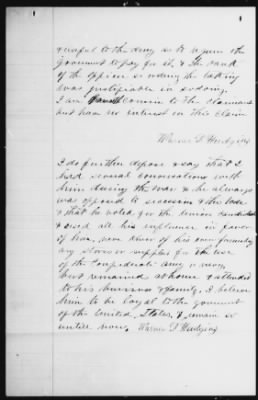 useful to the army as to require the
government to pay for it, & the rank
of the officer ordering the taking
was justifiable in so doing.
I am cousin to the claimant
but have no interest in this claim
Warner D. Hudgins
I do further depose & say that I
had several conversations with
him during the war & he always
was opposed to secession & the
& that he voted for the Union candidate
& used all his influence in favor
of him, never knew of his ever furnishing
any stores or supplies for the use
of the Confederate army or navy
but remained at home & attended
to his business & family. I believe
him to be loyal to the government
of the United States, & remain so
untill now. Warner D Hudgins